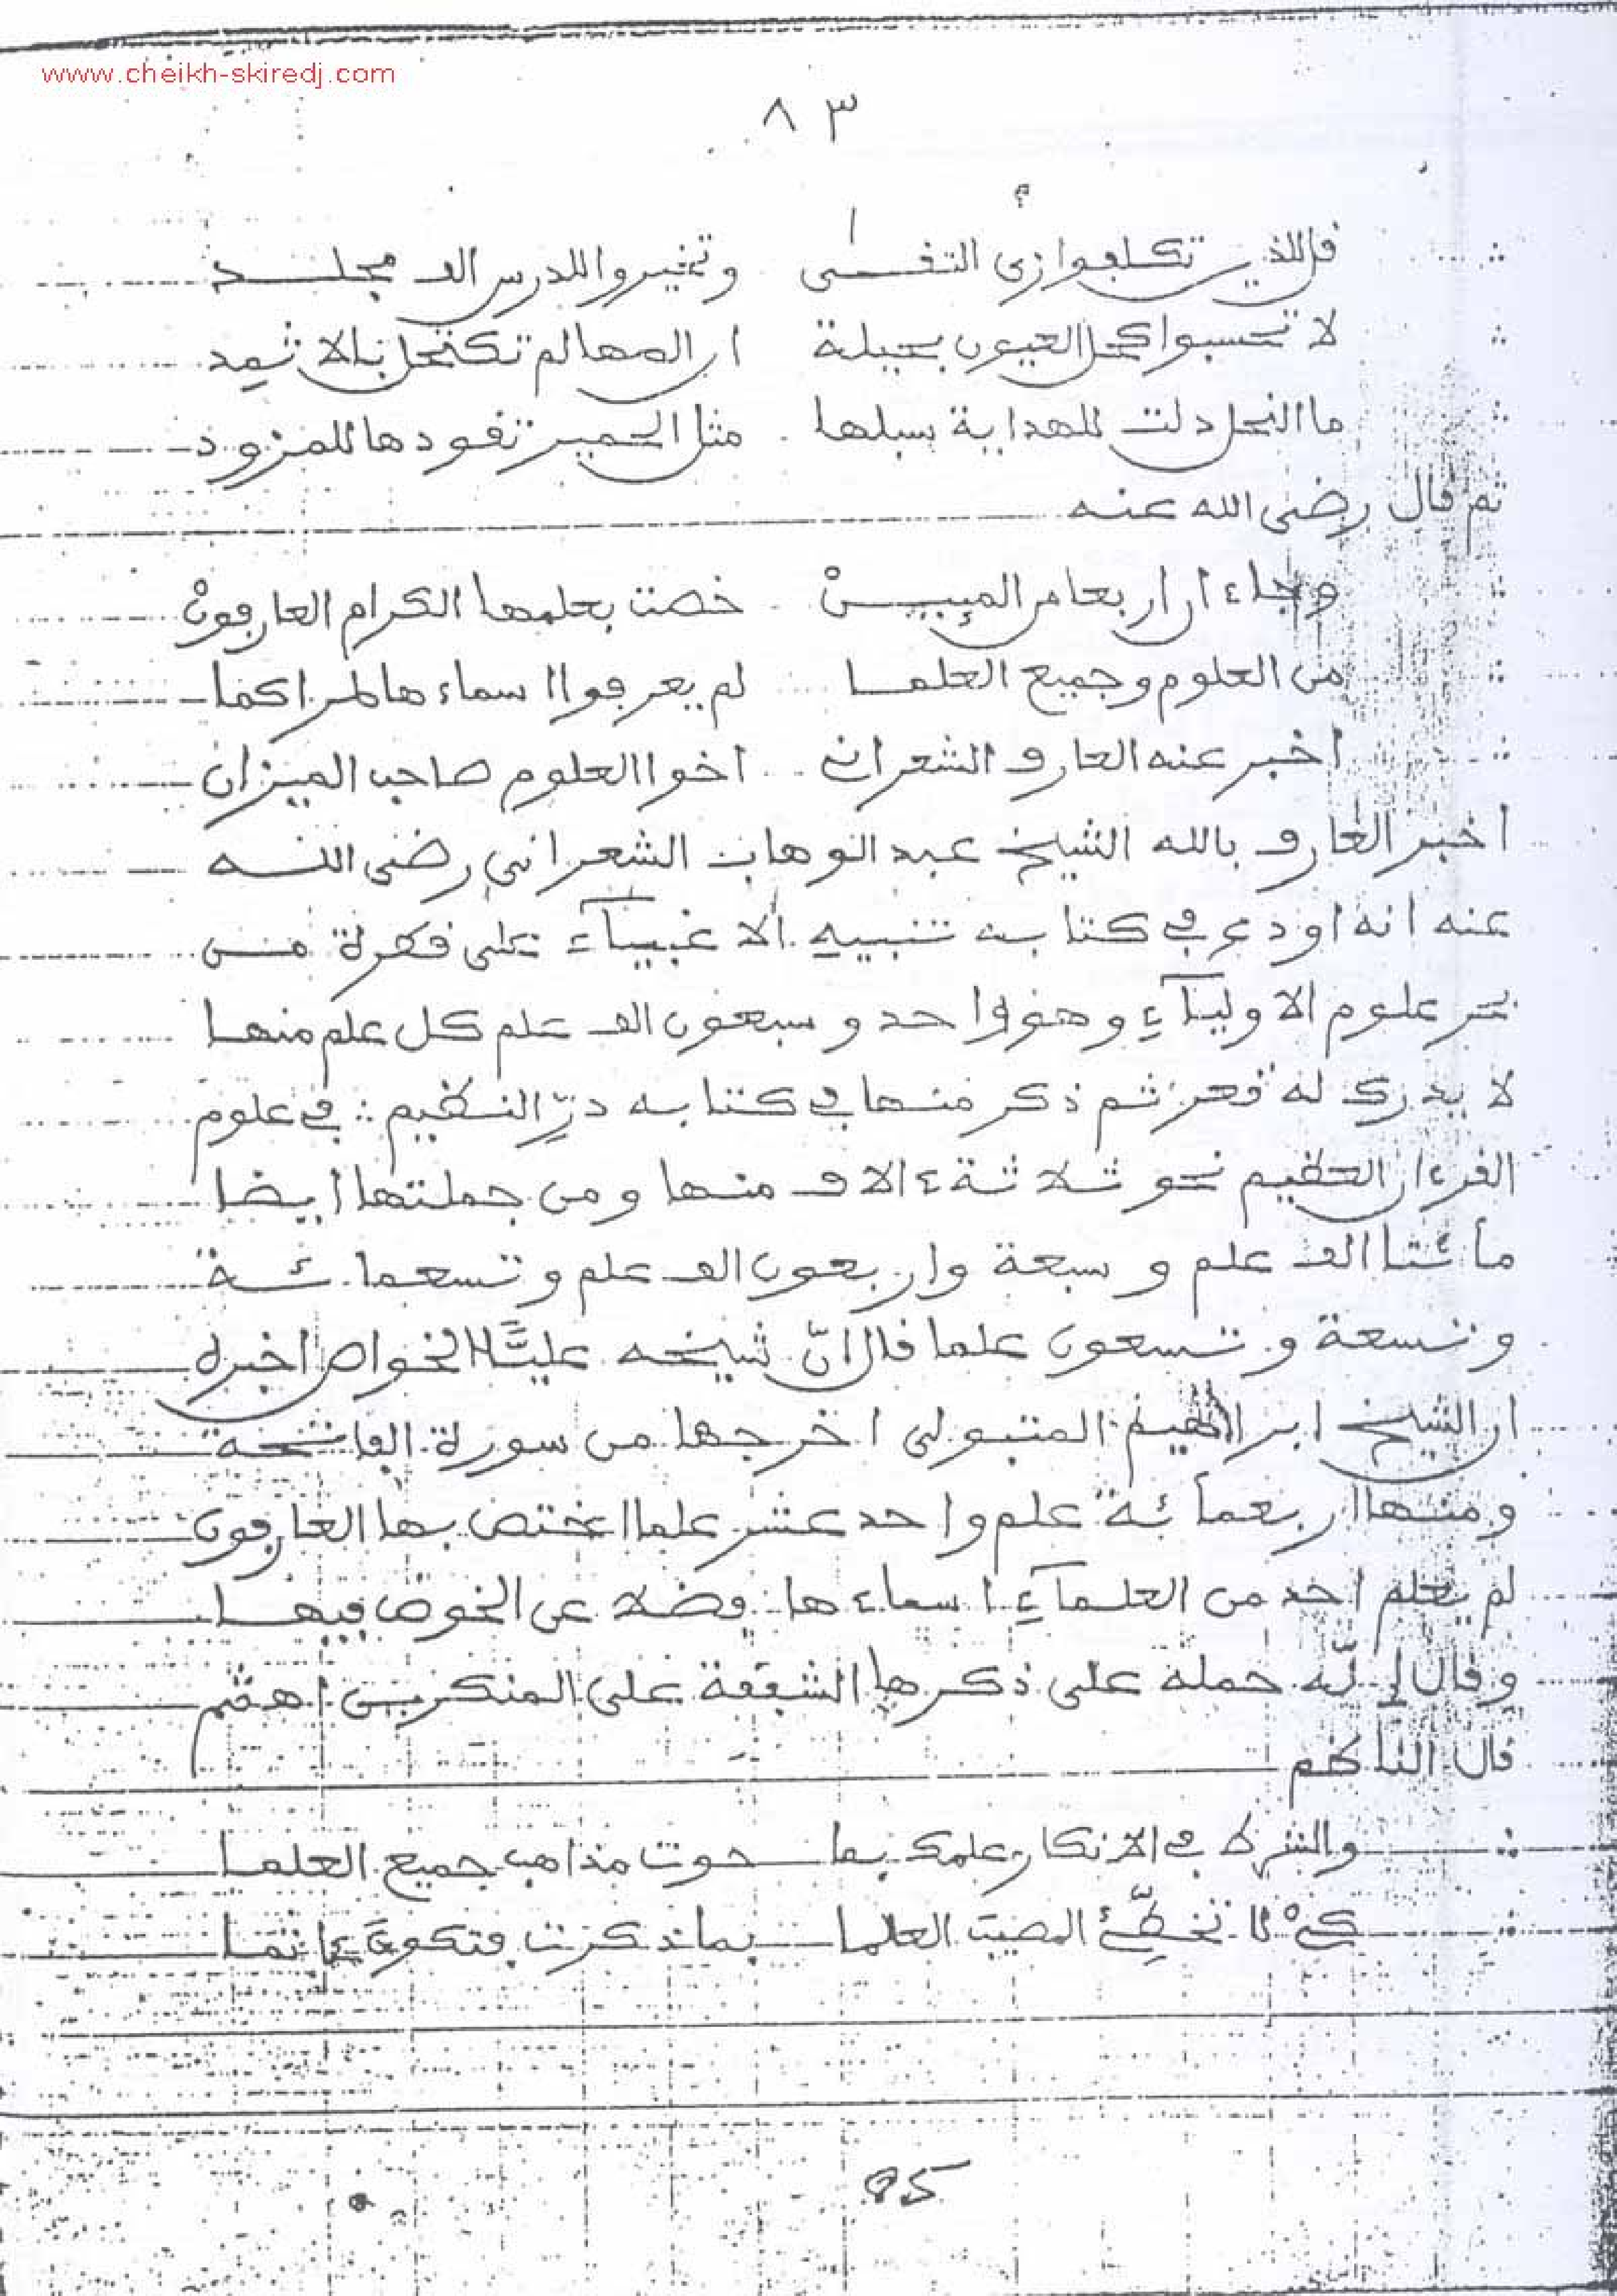 www.cheikh-skiredj.com
٨٣
قل للذين تكلفوا زي التقى وتخيروا للدرس الف مجلد
لا تحسبوا كحل العيون بحيلة ان المها لم تكتحل بالاثمد
ما النحل دلت للهداية سبلها مثل الحمير تقودها للمزود
ثم قال رضى الله عنه
وجاء ان اربعا من المبين خصت بعلمها الكرام العارفون
من العلوم وجميع العلما لم يعرفوا اسماءها
اخبر عنه العارف الشعراني اخوا العلوم صاحب الميزان
اخبر العارف بالله الشيخ عبد الوهاب الشعراني رضى الله
عنه انه اودع في كتابه تنبيه الاغبيآء على قطرة من
بحر علوم الاوليآء وهو واحد وسبعون الف علم كل علم منها
لا يدرك له قعر ثم ذكر منها في كتابه درّ النظيم في علوم
القرءان العظيم نحو ثلاثة ءالاف منها ومن جملتها أيضا
مأئتا الف علم وسبعة واربعون الف علم وتسعمائة
وتسعة وتسعون علما قال انّ شيخه عليًّا الخواص اخبره
ان الشيخ ابراهيم المتبولى اخرجها من سورة الفاتحة
ومنها اربعمأئة علم واحد عشر علما اختص بها العارفون
لم يعلم احد من العلمآء اسماءها فضلا عن الخوض فيها
وقال انّه حمله على ذكرها الشفقة على المنكرين اهـ ثم
قال الناظم
والشرط في الانكار علمك بما حوت مذاهب جميع العلما
كيْ لا تخطّئ المصيب العلما بما ذكرت فتكون ءاثما